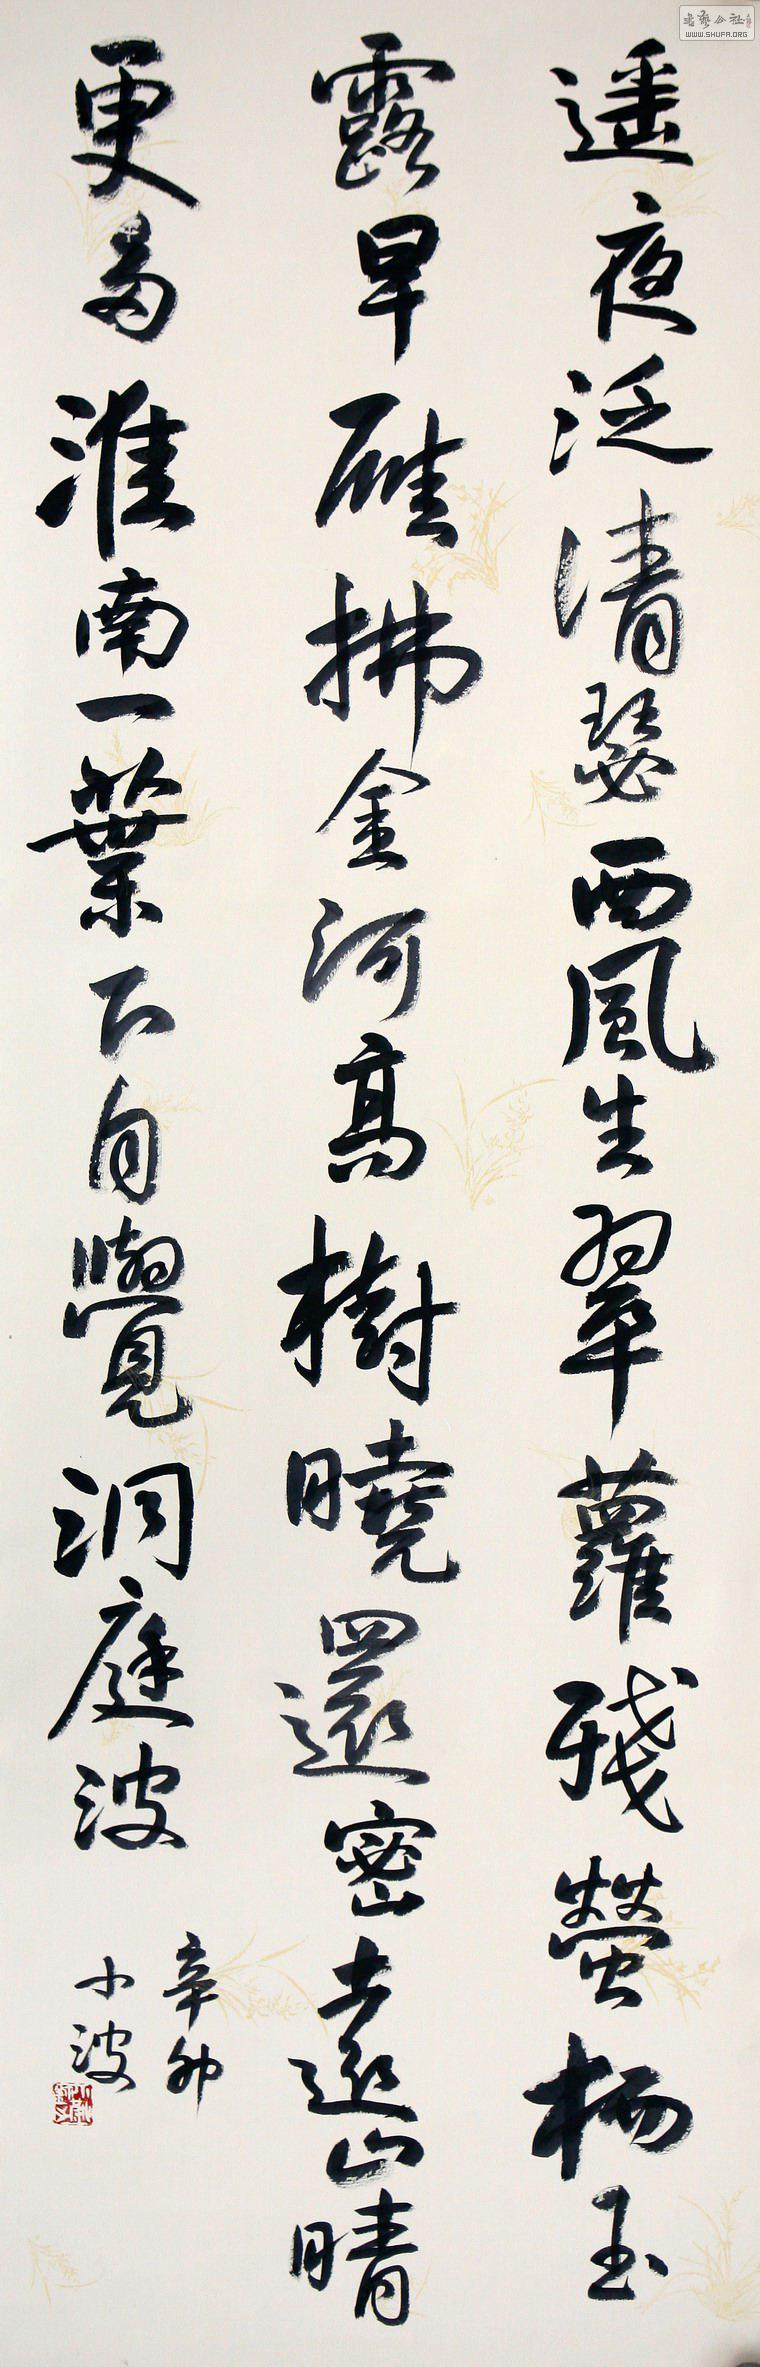 遙夜泛清瑟西風生翠蘿殘螢栖玉
露早雁拂金河高樹曉還密遠山晴
更多淮南一葉下自覺洞庭波
辛卯
小波
WWW.SHUFA.ORG